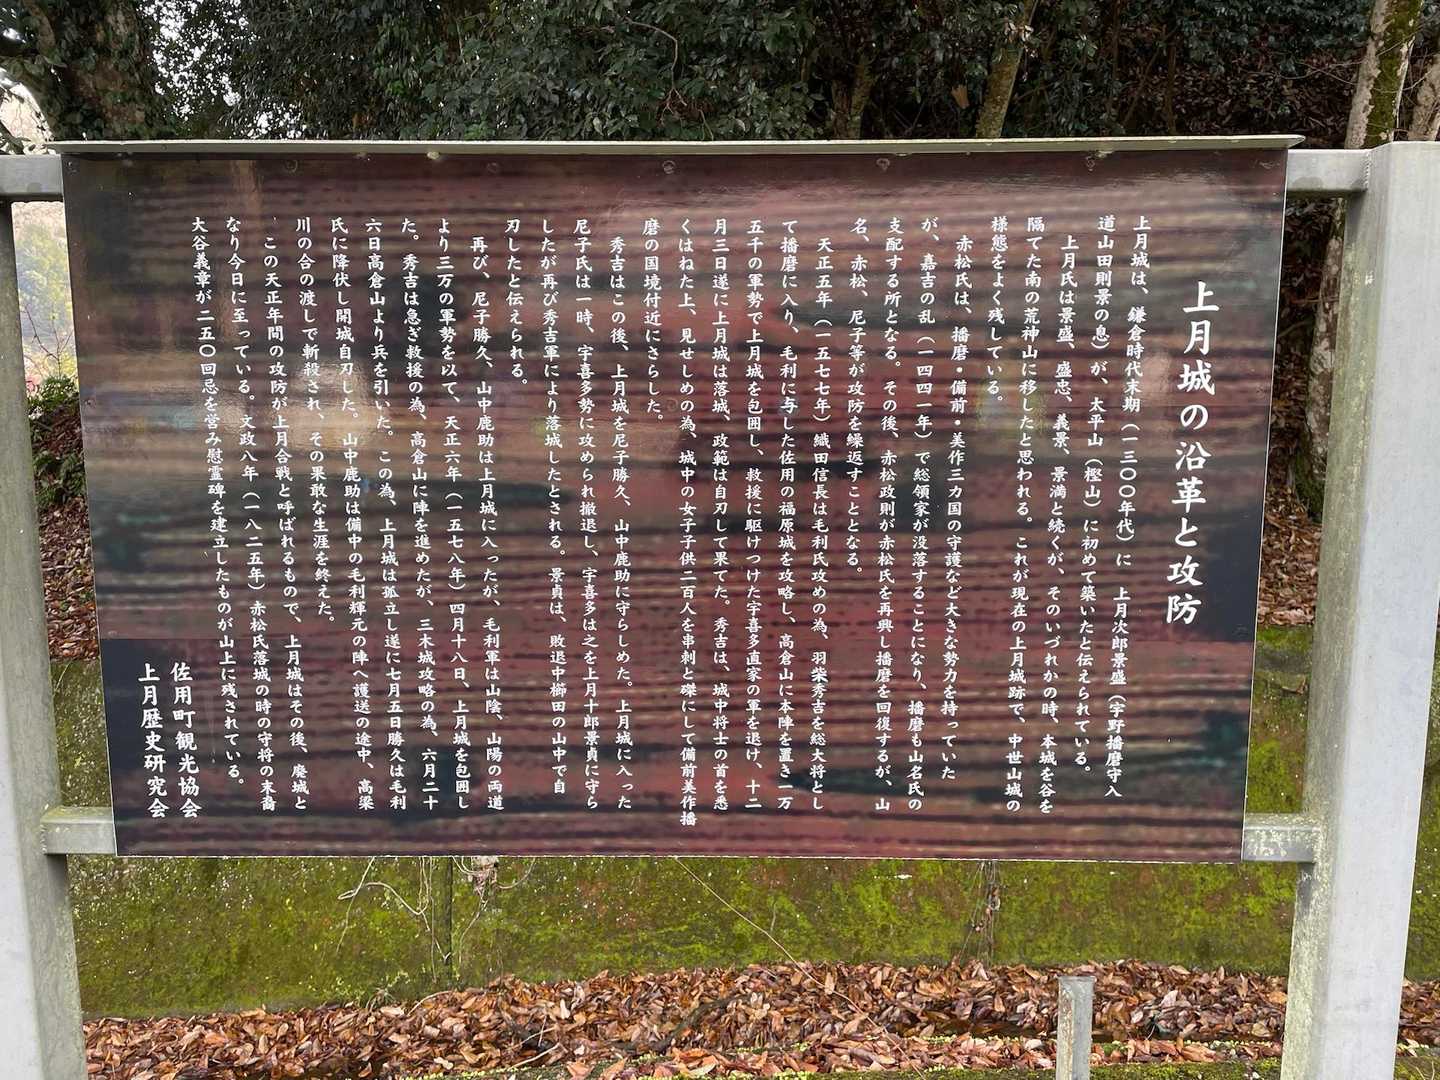 上月城の沿革と攻防
上月城は、鎌倉時代末期（一三〇〇年代）に　上月次郎景盛（宇野播磨守入
道山田則景の息）が、太平山（樫山）に初めて築いたと伝えられている。
上月氏は景盛、盛忠、義景、景満と続くが、そのいづれかの時、本城を谷を
隔てた南の荒神山に移したと思われる。これが現在の上月城跡で、中世山城の
様態をよく残している。
赤松氏は、播磨・備前・美作三カ国の守護など大きな勢力を持っていた
が、嘉吉の乱（一四四一年）で総領家が没落することになり、播磨も山名氏の
支配する所となる。その後、赤松政則が赤松氏を再興し播磨を回復するが、山
名、赤松、尼子等が攻防を繰返すこととなる。
天正五年（一五七七年）織田信長は毛利氏攻めの為、羽柴秀吉を総大将とし
て播磨に入り、毛利に与した佐用の福原城を攻略し、高倉山に本陣を置き一万
五千の軍勢で上月城を包囲し、救援に駆けつけた宇喜多直家の軍を退け、十二
月三日遂に上月城は落城、政範は自刃して果てた。秀吉は、城中将士の首を悉
くはねた上、見せしめの為、城中の女子子供二百人を串刺と磔にして備前美作播
磨の国境付近にさらした。
秀吉はこの後、上月城を尼子勝久、山中鹿助に守らしめた。上月城に入った
尼子氏は一時、宇喜多勢に攻められ撤退し、宇喜多は之を上月十郎景貞に守ら
したが再び秀吉軍により落城したとされる。景貞は、敗退中櫛田の山中で自
刃したと伝えられる。
再び、尼子勝久、山中鹿助は上月城に入ったが、毛利軍は山陰、山陽の両道
より三万の軍勢を以て、天正六年（一五七八年）四月十八日、上月城を包囲し
た。秀吉は急ぎ救援の為、高倉山に陣を進めたが、三木城攻略の為、六月二十
六日高倉山より兵を引いた。この為、上月城は孤立し遂に七月五日勝久は毛利
氏に降伏し開城自刃した。山中鹿助は備中の毛利輝元の陣へ護送の途中、高梁
川の合の渡しで斬殺され、その果敢な生涯を終えた。
この天正年間の攻防が上月合戦と呼ばれるもので、上月城はその後、廃城と
なり今日に至っている。文政八年（一八二五年）赤松氏落城の時の守将の末裔
大谷義章が二五〇回忌を営み慰霊碑を建立したものが山上に残されている。
佐用町観光協会
上月歴史研究会